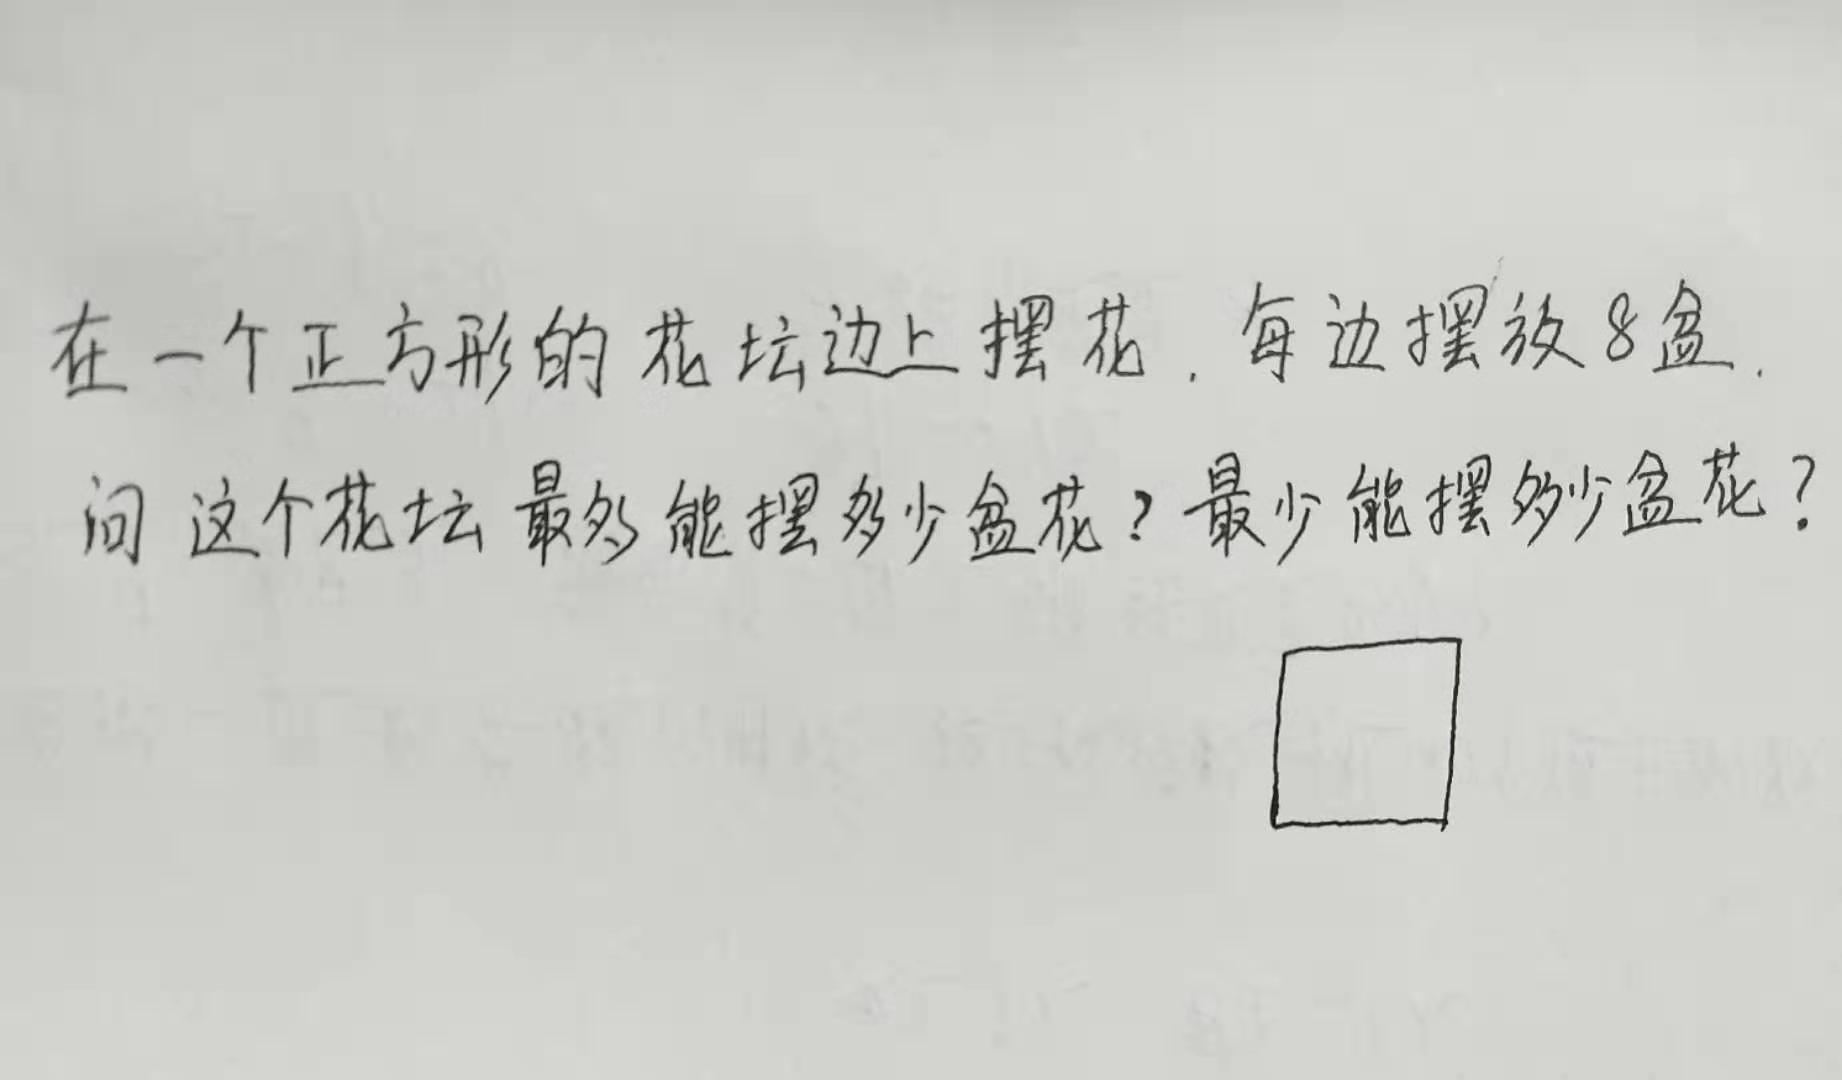 在一个正方形的花坛边上摆花.每边摆放8盆.
问这个花坛最多能摆多少盆花?最少能摆多少盆花?